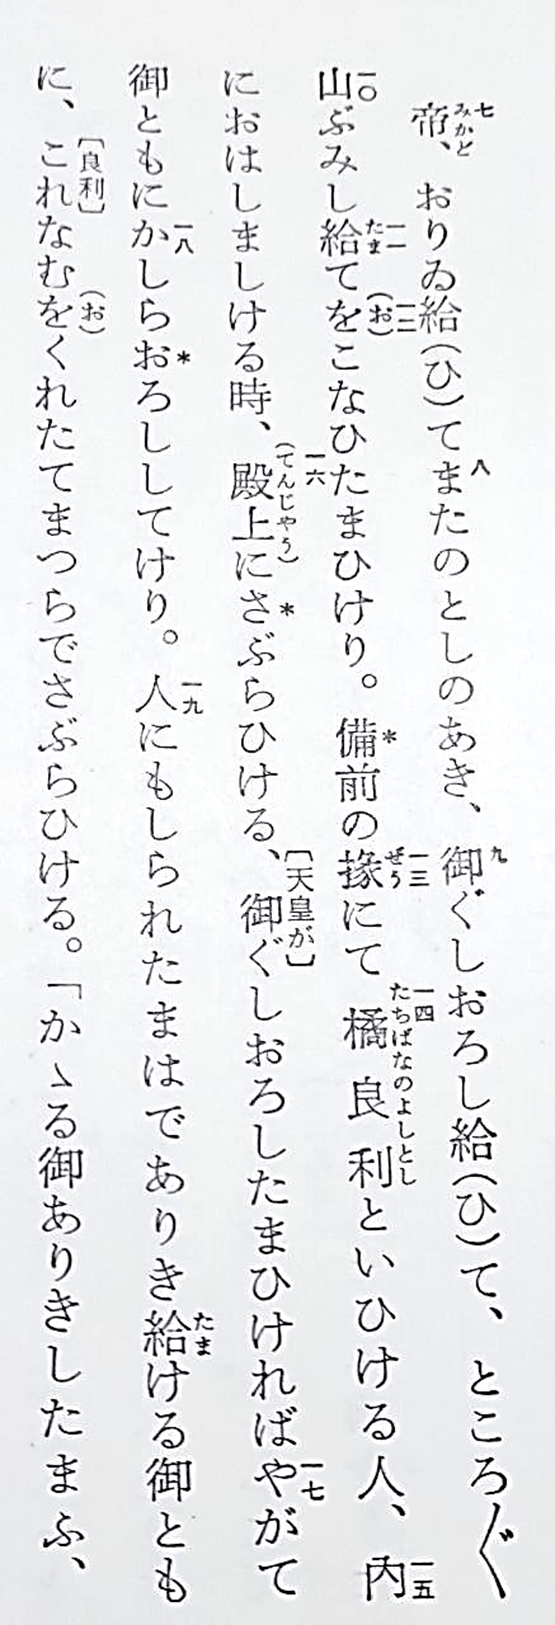 帝、おりゐ給(ひ)てまたのとしのあき、御ぐしおろし給(ひ)て、ところ〴〵
山ぶみし給てをこなひたまひけり。備前の掾にて橘良利といひける人、内
におはしましける時、殿上にさぶらひける、御ぐしおろしたまひければやがて
御ともにかしらおろしてけり。人にもしられたまはでありき給ける御とも
に、これなむをくれたてまつらでさぶらひける。「かゝる御ありきしたまふ、